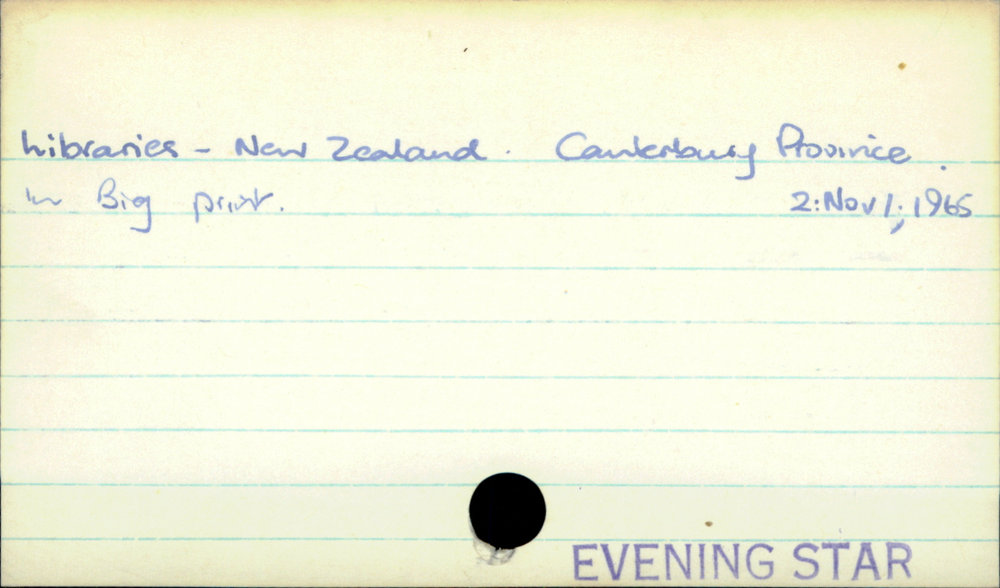 Libraries - New Zealand. Canterbury Province.
In Big print. 2: Nov 1; 1965
EVENING STAR